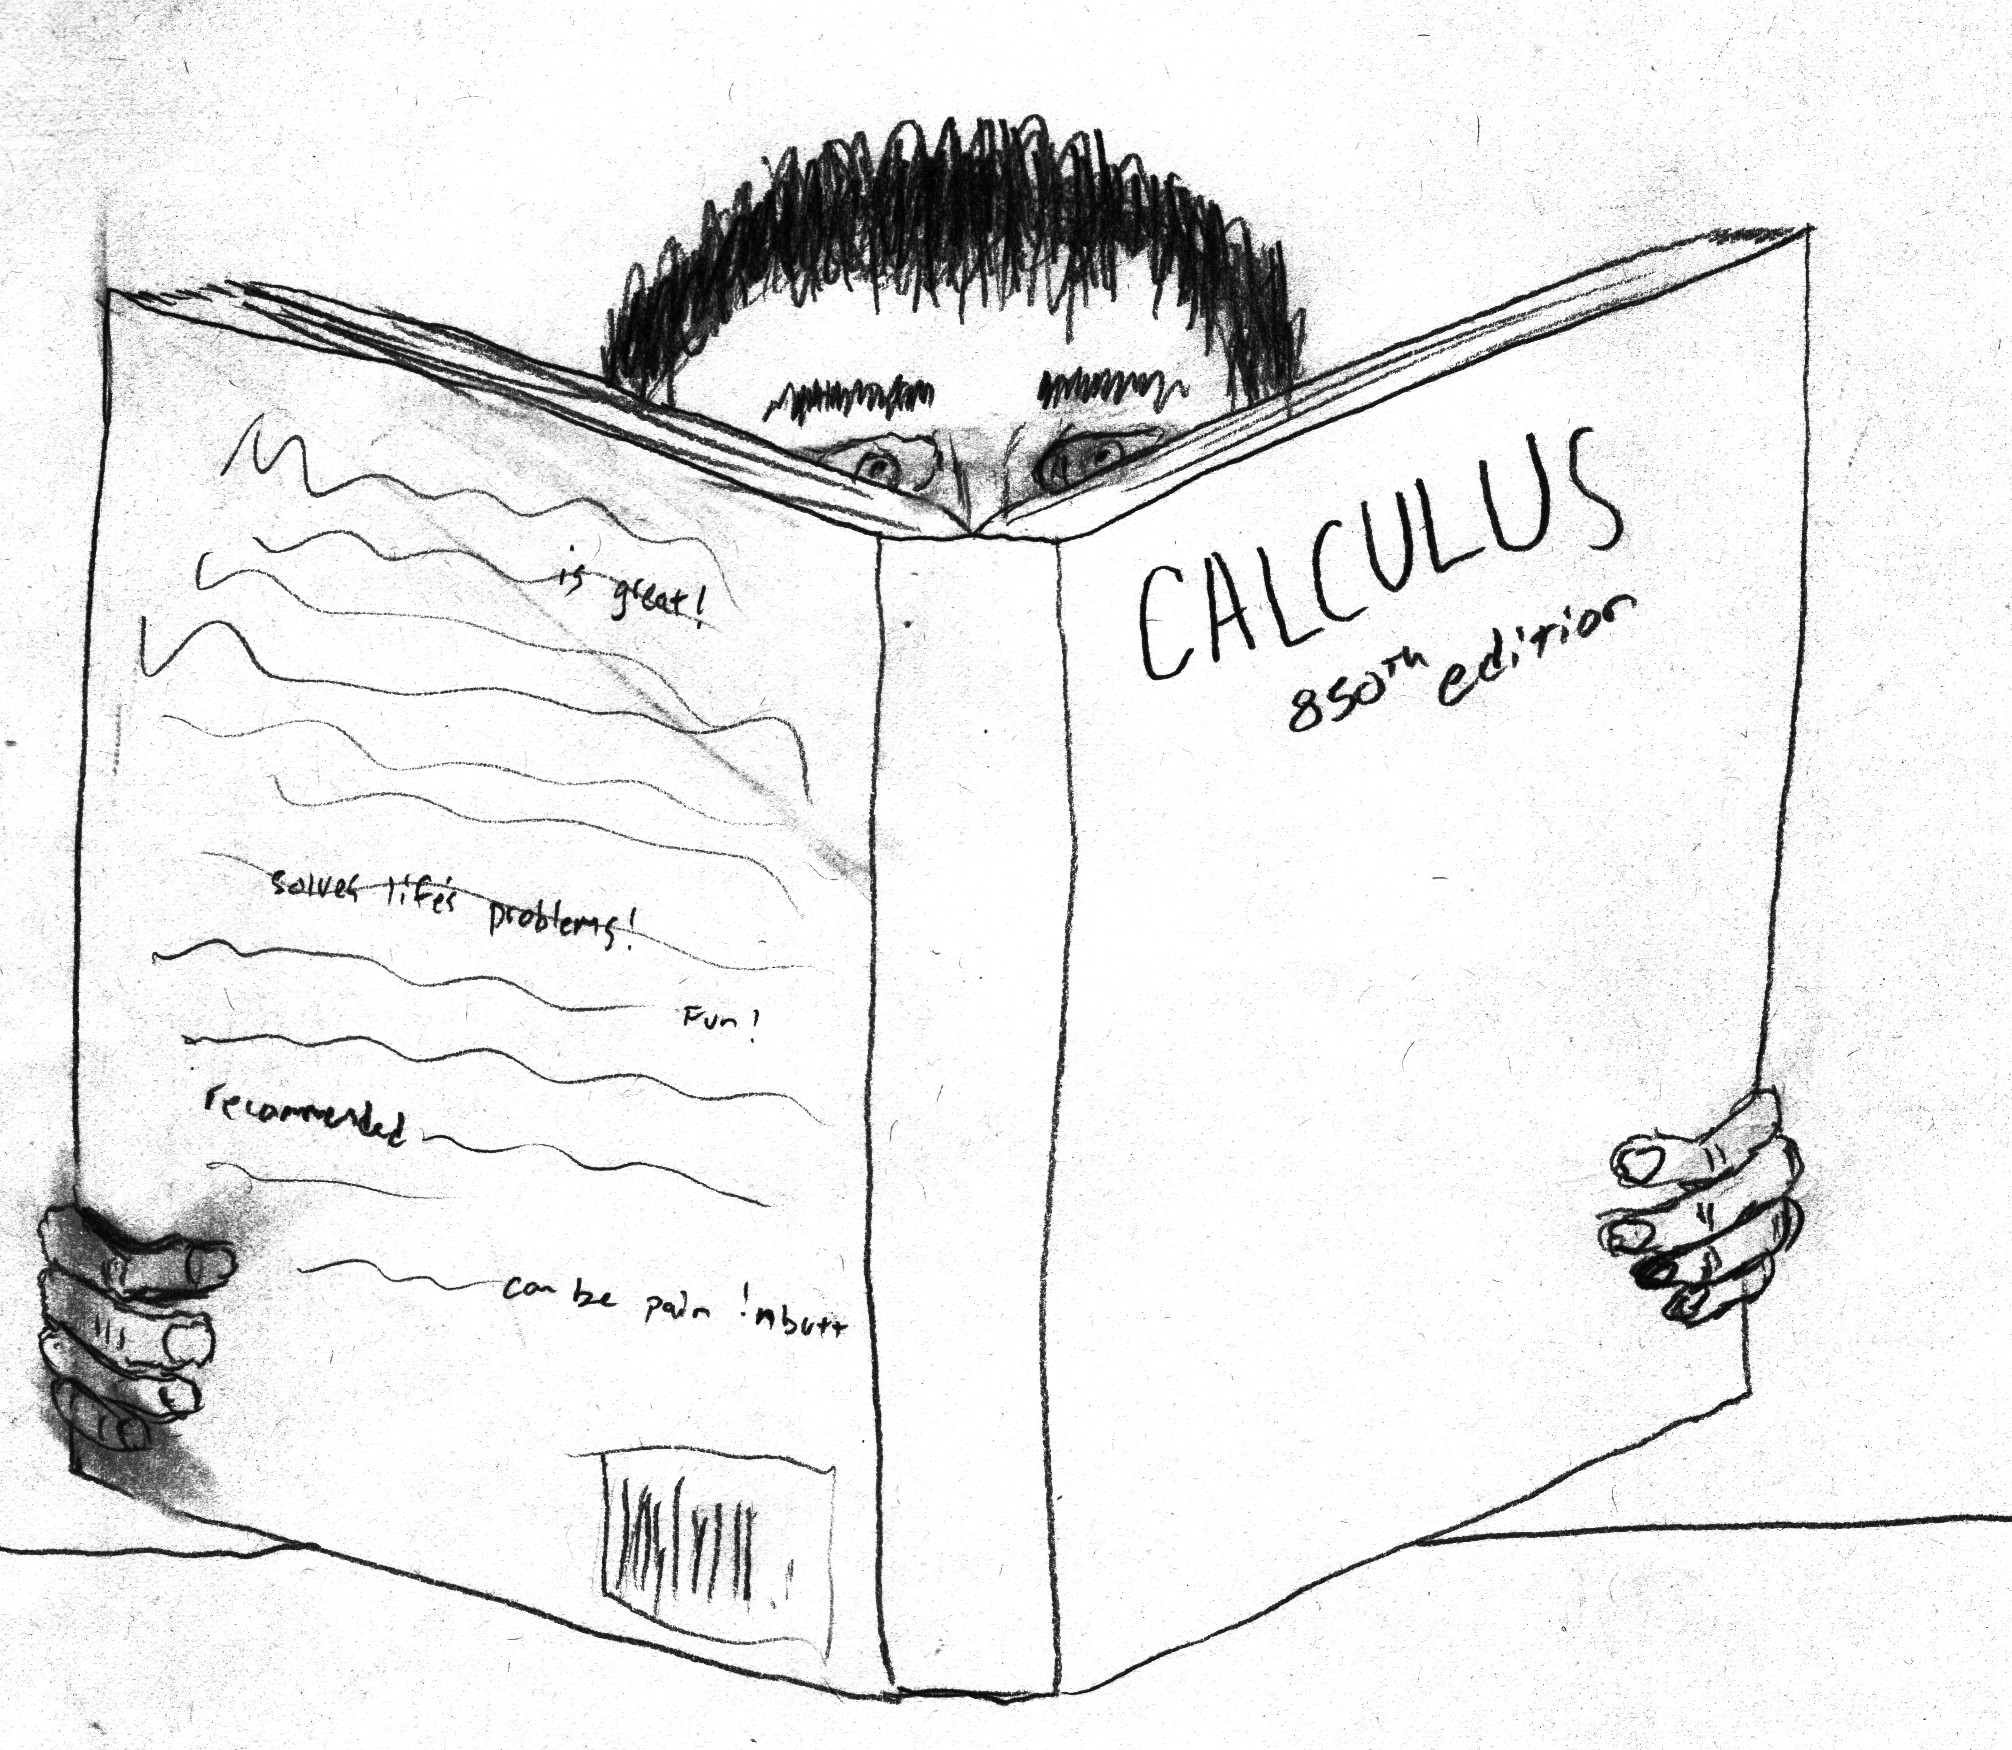 is great!
solves life's problems!
Fun!
recommended
can be pain inbutt
CALCULUS
850TH edition